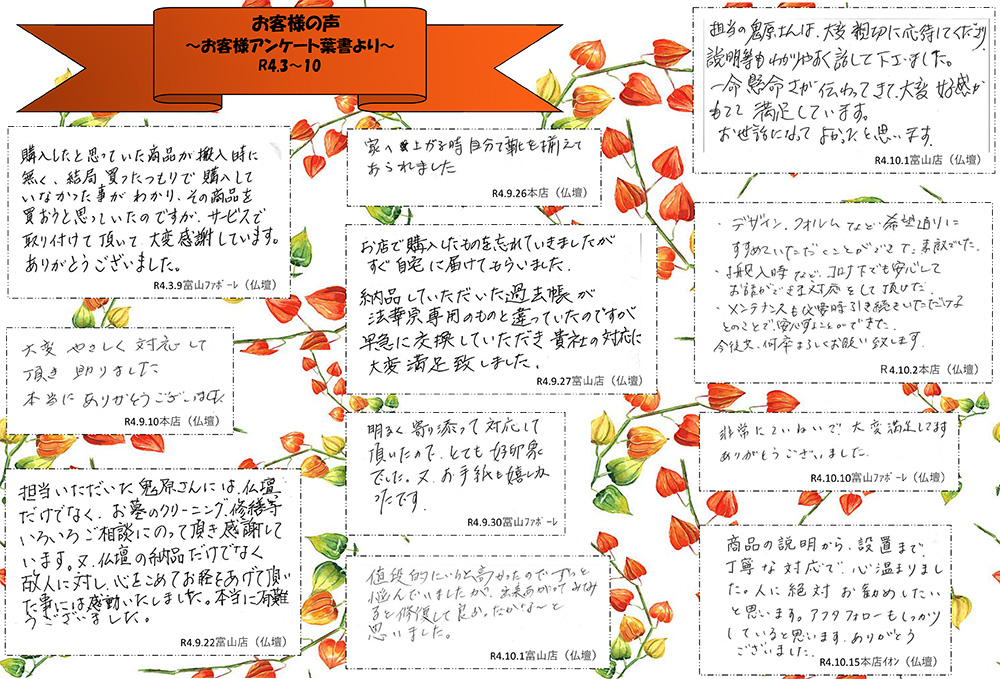 お客様の声
～お客様アンケート葉書より～
R4.3～10
購入したと思っていた商品が搬入時に
無く、結局買ったつもりで購入して
いなかった事がわかり、その商品を
買おうと思っていたのですが、サービスで
取り付けて頂いて大変感謝しています。
ありがとうございました。
R4.3.9富山ﾌｧﾎﾞｰﾚ（仏壇）
大変 やさしく対応して
頂き助りました
本当にありがとうございました
R4.9.10本店（仏壇）
担当いただいた鬼原さんには、仏壇
だけでなく、お墓のクリーニング、修繕等
いろいろご相談にのって頂き感謝して
います。又、仏壇の納品だけでなく
故人に対し、心をこめてお経をあげて頂い
た事には感動いたしました。本当に有難
うございました。
R4.9.22富山店（仏壇）
家へ上がる時自分で靴を揃えて
おられました
R4.9.26本店（仏壇）
お店で購入したものを忘れていきましたが
すぐ自宅に届けてもらいました.
納品していただいた過去帳が
法華宗専用のものと違っていたのですが
早急に交換していただき貴社の対応に
大変満足致しました。
R4.9.27富山店（仏壇）
明るく寄り添って対応して
頂いたので、とても好印象
でした。又、お手紙も嬉しか
ったです。
R4.9.30富山ﾌｧﾎﾞｰﾚ（仏壇）
値段的にいうと高かったのでずっと
悩んでいましたが、出来あがってみてみ
ると修復して良かったかな～と
思いました。
R4.10.1富山店（仏壇）
担当の鬼原さんは、大変親切に応待してくださり、
説明等もわかりやすく話して下さいました。
一命懸命さが伝わってきて、大変好感が
もてて満足しています。
お世話になってよかったと思います.
R4.10.1富山店（仏壇）
・デザイン、フォルムなど希望通りに
すすめていただくことができて、素敵でした。
・搬入時など、コロナ下でも安心して
お話ができる対応をして頂けた。
・メンテナンスも必要時引き続きいただける
とのことで安心することができた。
今後共、何卒よろしくお願い致します.
R4.10.2本店（仏壇）
非常にていねいで、大変満足してます
ありがとうございました.
R4.10.10富山ﾌｧﾎﾞｰﾚ（仏壇）
商品の説明から、設置まで
丁寧な対応で、心温まりまし
た。人に絶対お勧めしたい
と思います。アフタフォローもしっかり
していると思います.ありがとう
ございました.
R4.10.15本店ｲｵﾝ（仏壇）